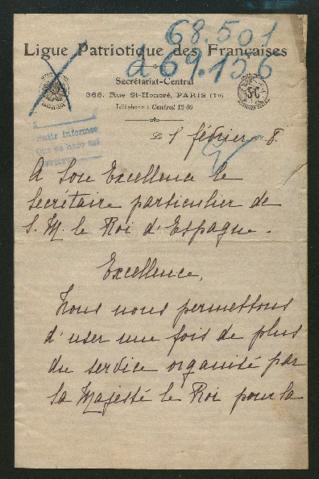 68.501
a 69.156
Ligue Patriotique des Françaises
Secrétariat-Central
368, Rue St-Honoré, PARIS (1er)
Téléphone : Central
février 8.
A Son Excellence le
Secrétaire particulier de
S. M. le Roi d'Espagne.
Excellence,
Nous nous permettons
d'user une fois de plus
du service organisé par
sa Majesté le Roi pour la